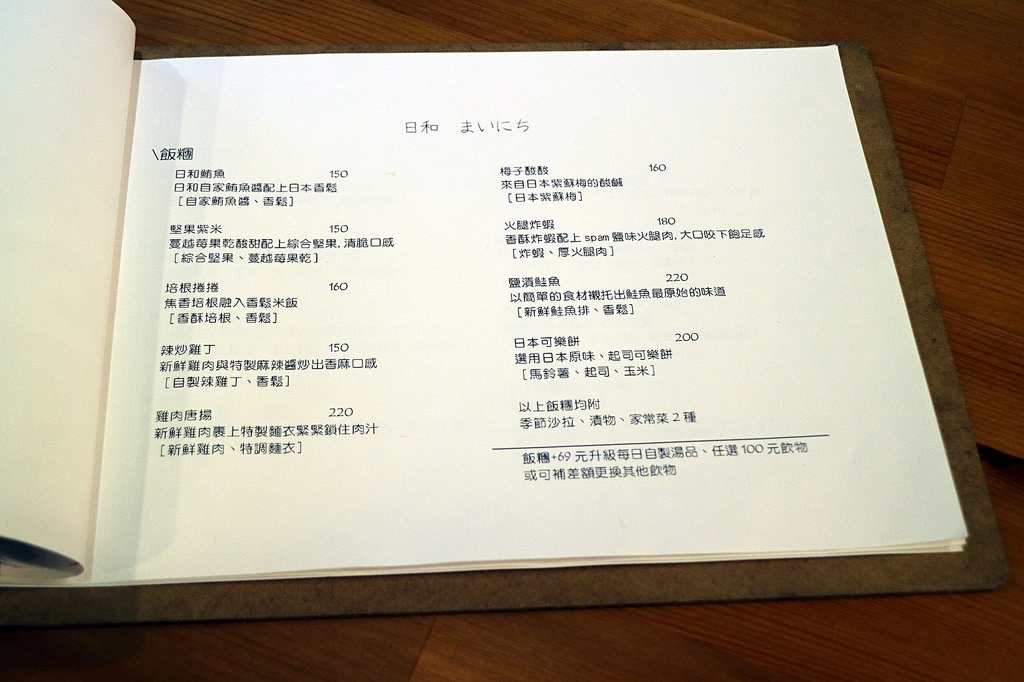 日和 まいにち
\飯糰
日和鮪魚 150
日和自家鮪魚醬配上日本香鬆
[自家鮪魚醬、香鬆]
堅果紫米 150
蔓越莓果乾酸甜配上綜合堅果,清脆口感
[綜合堅果、蔓越莓果乾]
培根捲捲 160
焦香培根融入香鬆米飯
[香酥培根、香鬆]
辣炒雞丁 150
新鮮雞肉與特製麻辣醬炒出香麻口感
[自製辣雞丁、香鬆]
雞肉唐揚 220
新鮮雞肉裹上特製麵衣緊緊鎖住肉汁
[新鮮雞肉、特調麵衣]
梅子酸酸 160
來自日本紫蘇梅的酸鹹
[日本紫蘇梅]
火腿炸蝦 180
香酥炸蝦配上 spam 鹽味火腿肉,大口咬下飽足感
[炸蝦、厚火腿肉]
鹽漬鮭魚 220
以簡單的食材襯托出鮭魚最原始的味道
[新鮮鮭魚排、香鬆]
日本可樂餅 200
選用日本原味、起司可樂餅
[馬鈴薯、起司、玉米]
以上飯糰均附
季節沙拉、漬物、家常菜 2 種
飯糰+69 元升級每日自製湯品、任選 100 元飲物
或可補差額更換其他飲物